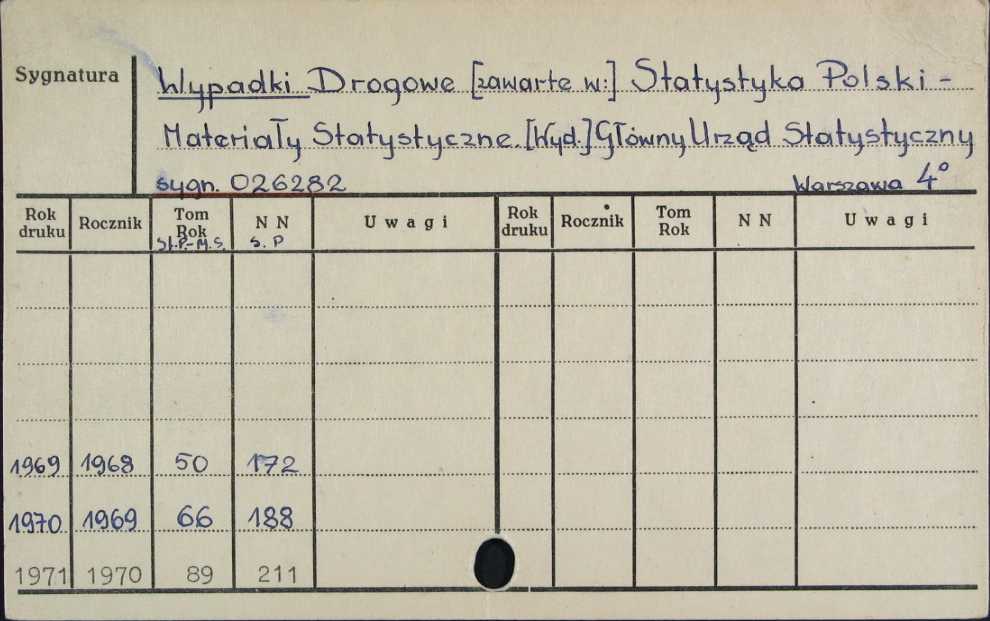 Sygnatura
Wypadki Drogowe [zawarte w:] Statystyka Polski -
Materiały Statystyczne. [Wyd.] Główny Urząd Statystyczny
sygn. 026282 Warszawa 4°
Rok druku Rocznik Tom Rok N N Uwagi Rok druku Rocznik Tom Rok N N Uwagi
St.P.-M.S. S. P
1969 1968 50 172
1970 1969 66 188
1971 1970 89 211